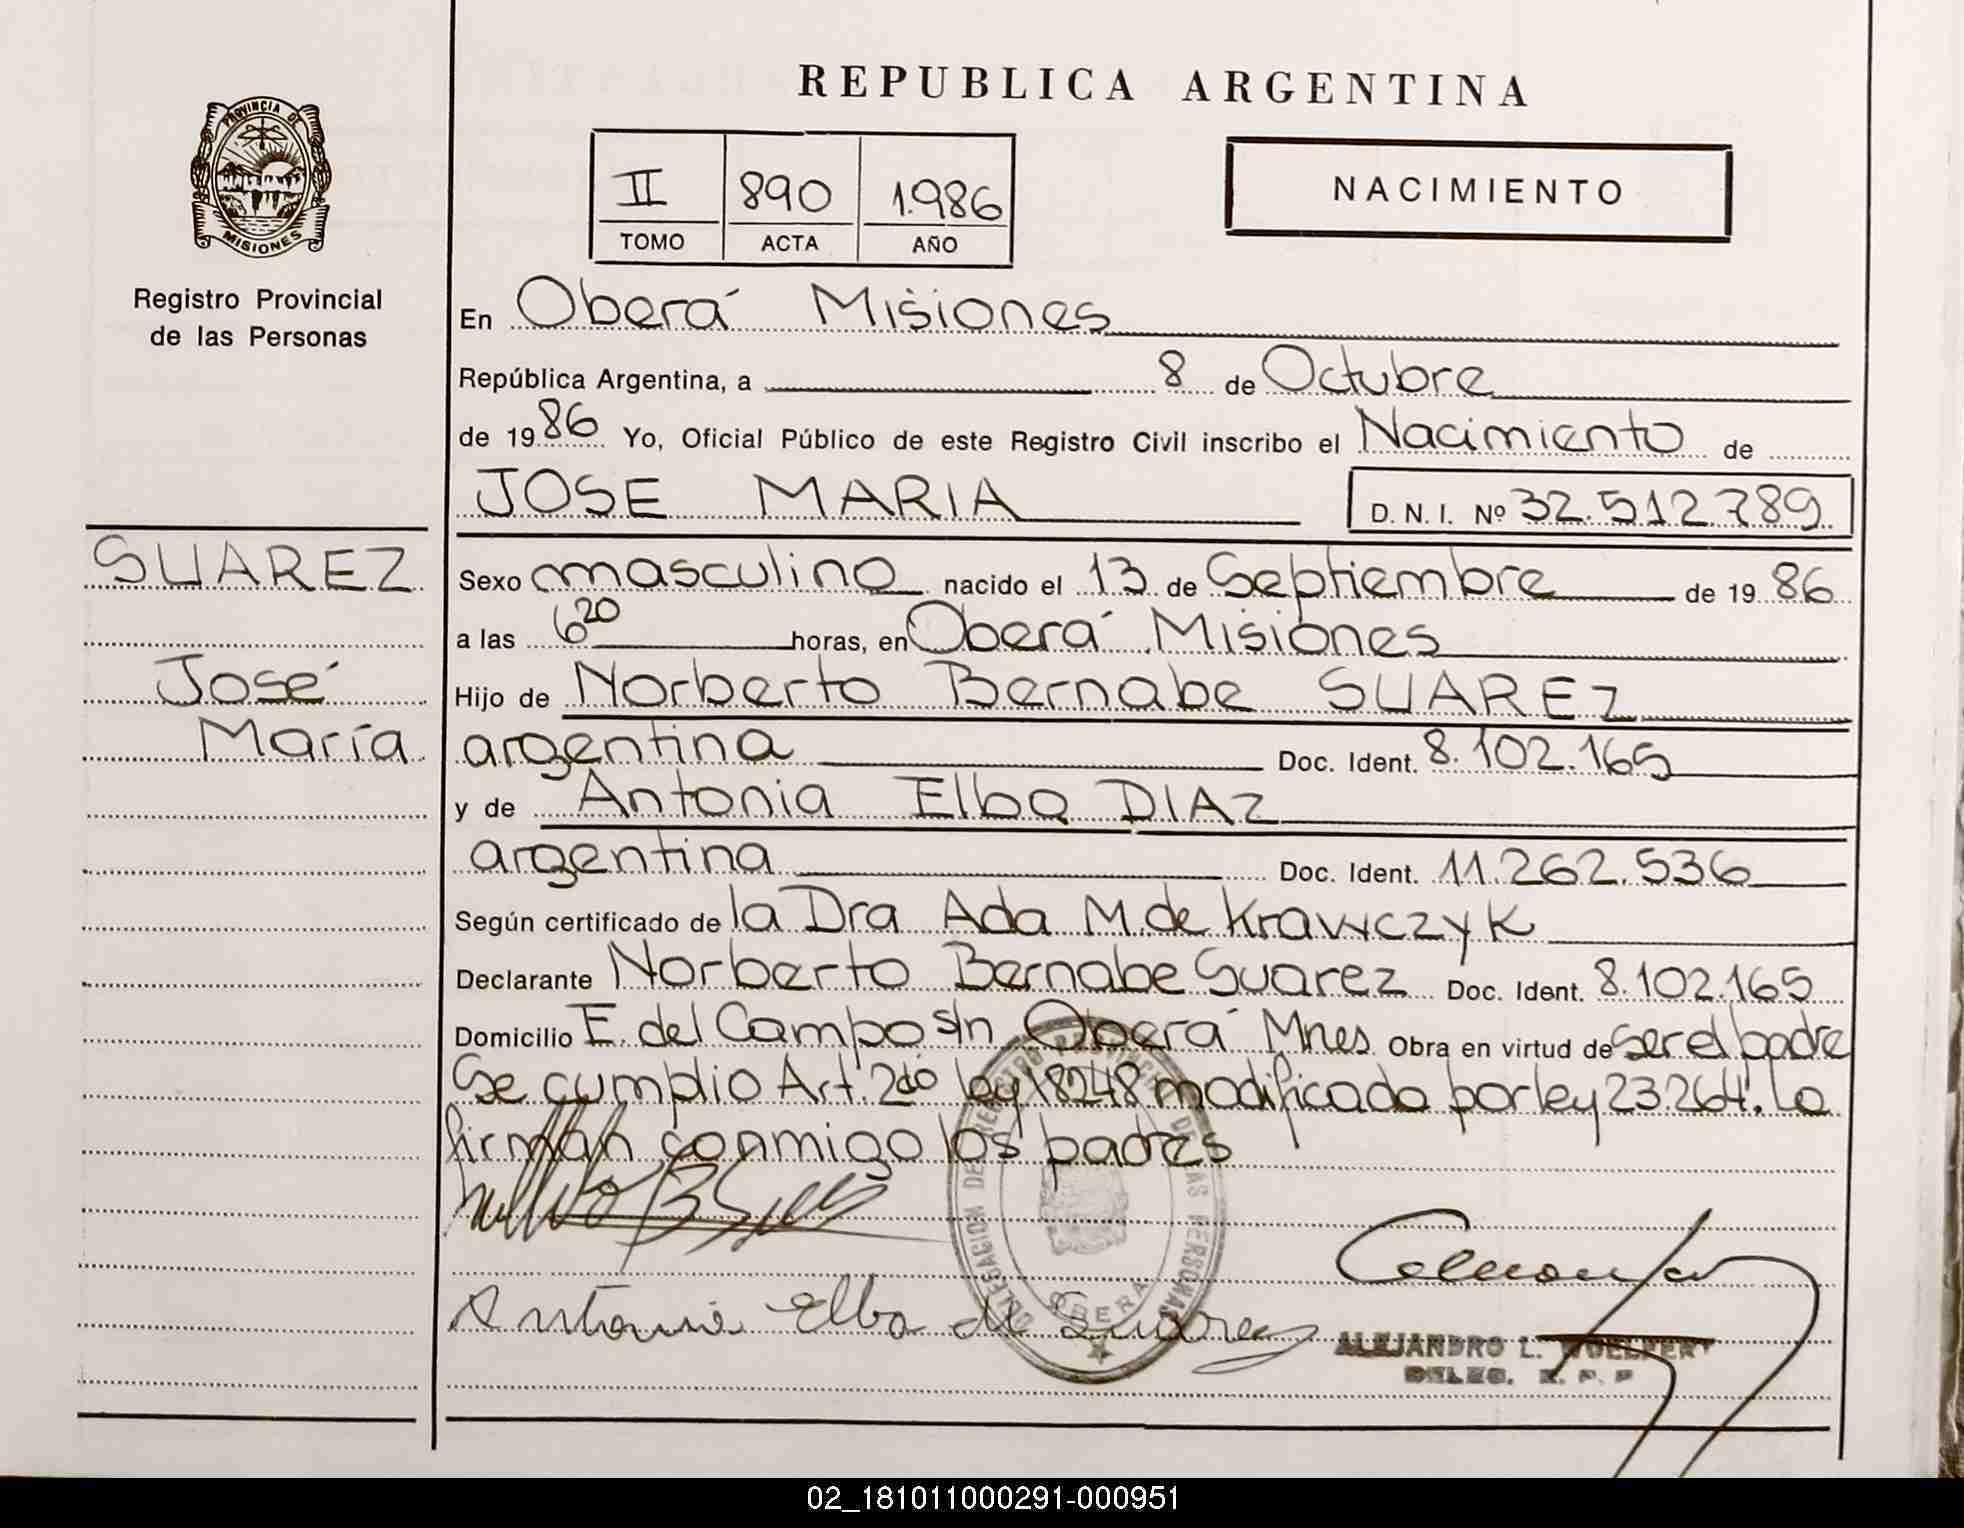 REPUBLICA ARGENTINA
PROVINCIA DE
MISIONES
Registro Provincial
de las Personas
II 890 1.986
TOMO ACTA AÑO
NACIMIENTO
En Oberá Misiones
República Argentina, a 8 de Octubre
de 1986 Yo, Oficial Público de este Registro Civil inscribo el Nacimiento de
JOSE MARIA D. N. I. Nº 32.512.789
SUAREZ
José
María
Sexo masculino nacido el 13 de Septiembre de 1986
a las 6 20 horas, en Oberá Misiones
Hijo de Norberto Bernabe SUAREZ
argentina Doc. Ident. 8.102.165
y de Antonia Elba DIAZ
argentina Doc. Ident. 11.262.536
Según certificado de la Dra Ada M. de Krawczyk
Declarante Norberto Bernabe Suarez Doc. Ident. 8.102.165
Domicilio E. del Campo s/n Oberá Mnes Obra en virtud de ser el padre
Se cumplio Art. 2do ley 18248 modificada por ley 23.264. La
firman conmigo los padres
DELEGACION DEL REGISTRO PROVINCIAL DE LAS PERSONAS
OBERA
Antonia Elba de Suarez
ALEJANDRO L.
DELEG. R. P. P
02_181011000291-000951